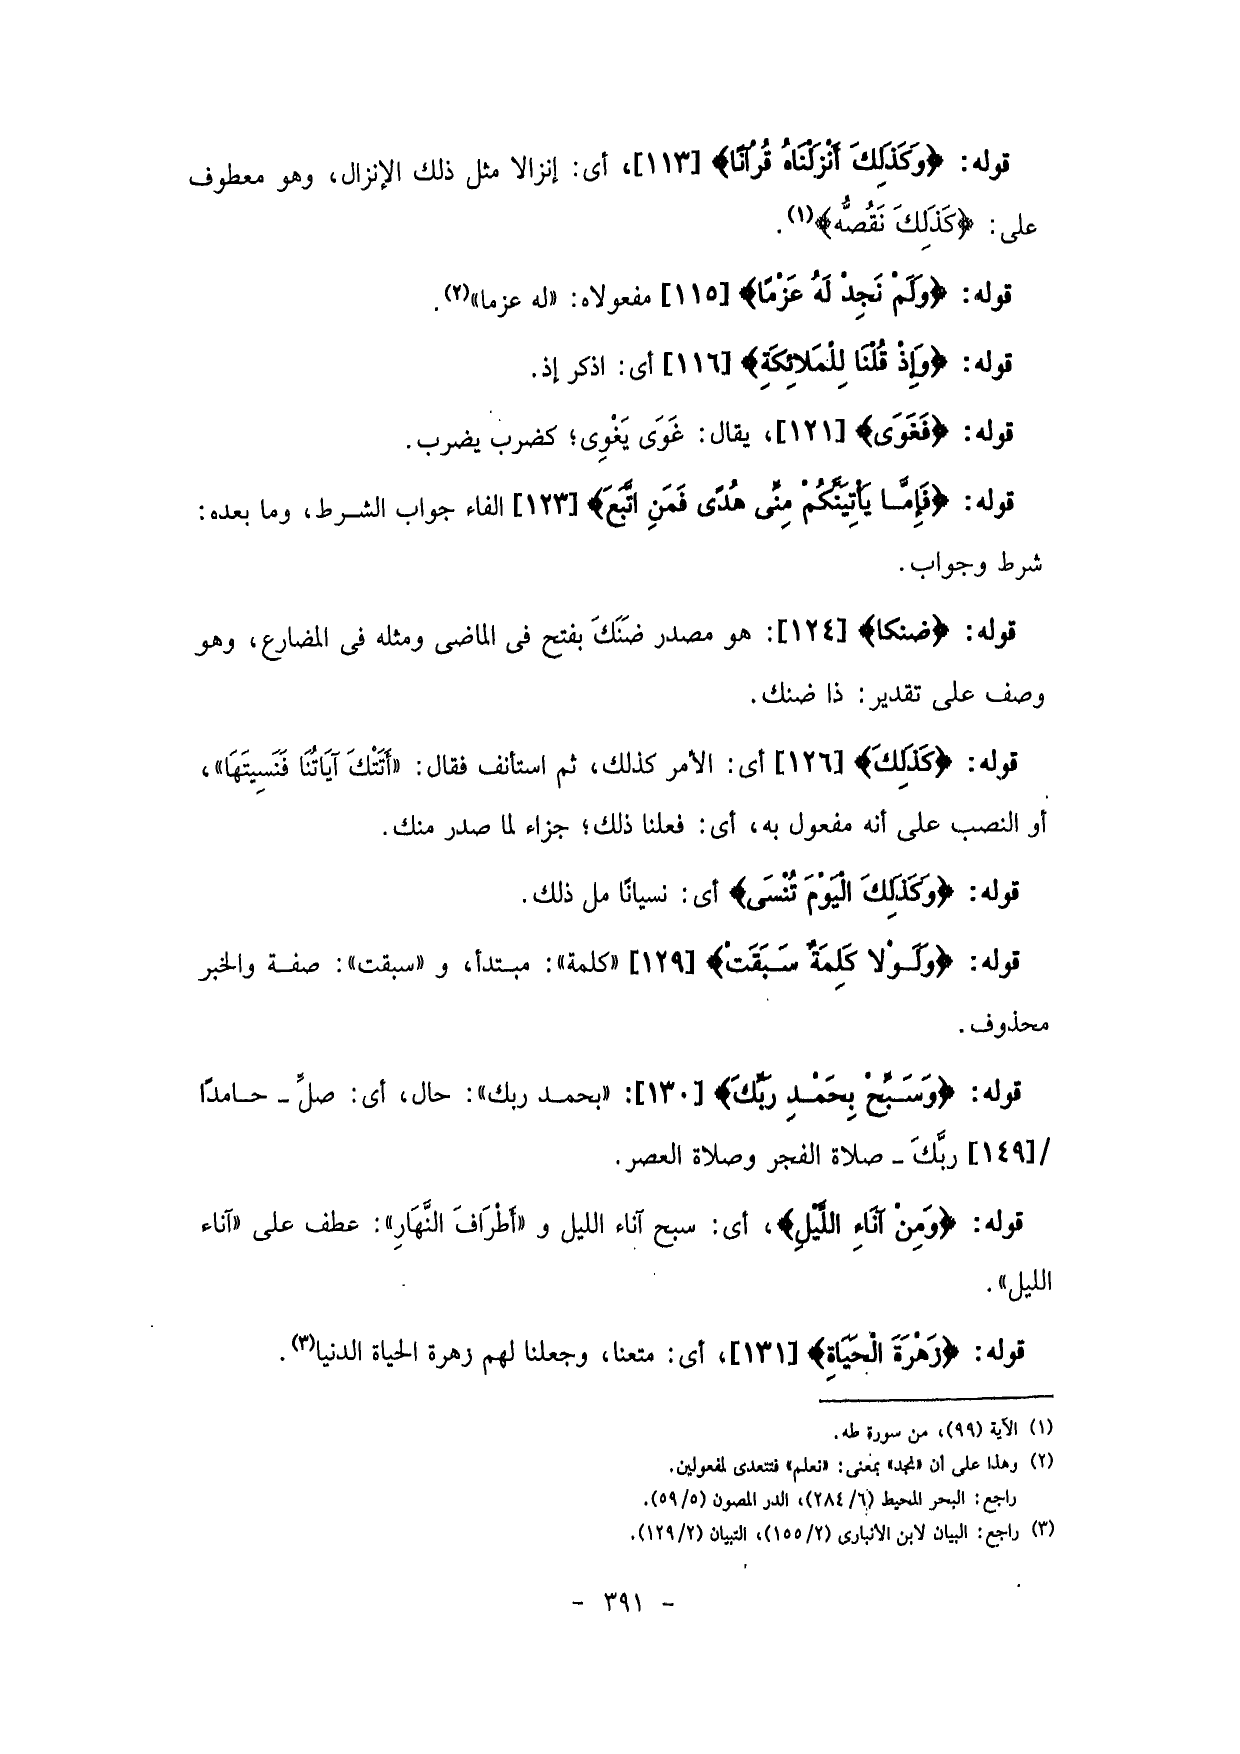 قوله: ﴿وَكَذَلِكَ أَنْزَلْنَاهُ قُرْآنًا﴾ [١١٣]، أى: إنزالا مثل ذلك الإنزال، وهو معطوف
على: ﴿كَذَلِكَ نَقُصُّ﴾(١).
قوله: ﴿وَلَمْ نَجِدْ لَهُ عَزْمًا﴾ [١١٥] مفعولاه: «له عزما»(٢).
قوله: ﴿وَإِذْ قُلْنَا لِلْمَلائِكَةِ﴾ [١١٦] أى: اذكر إذ.
قوله: ﴿فَغَوَى﴾ [١٢١]، يقال: غَوَى يَغْوِى؛ كضرب يضرب.
قوله: ﴿فَإِمَّا يَأْتِيَنَّكُمْ مِنِّى هُدًى فَمَنِ اتَّبَعَ﴾ [١٢٣] الفاء جواب الشرط، وما بعده:
شرط وجواب.
قوله: ﴿ضنكا﴾ [١٢٤]: هو مصدر ضَنَكَ بفتح فى الماضى ومثله فى المضارع، وهو
وصف على تقدير: ذا ضنك.
قوله: ﴿كَذَلِكَ﴾ [١٢٦] أى: الأمر كذلك، ثم استأنف فقال: «أَتَتْكَ آيَاتُنَا فَنَسِيتَهَا»،
أو النصب على أنه مفعول به، أى: فعلنا ذلك؛ جزاء لما صدر منك.
قوله: ﴿وَكَذَلِكَ الْيَوْمَ تُنْسَى﴾ أى: نسيانًا مل ذلك.
قوله: ﴿وَلَوْلا كَلِمَةٌ سَبَقَتْ﴾ [١٢٩] «كلمة»: مبتدأ، و «سبقت»: صفة والخبر
محذوف.
قوله: ﴿وَسَبِّحْ بِحَمْدِ رَبِّكَ﴾ [١٣٠]: «بحمد ربك»: حال، أى: صلِّ ـ حامدًا
/[١٤٩] ربَّكَ ـ صلاة الفجر وصلاة العصر.
قوله: ﴿وَمِنْ آنَاءِ اللَّيْلِ﴾، أى: سبح آناء الليل و «أَطْرَافَ النَّهَارِ»: عطف على «آناء
الليل».
قوله: ﴿زَهْرَةَ الْحَيَاةِ﴾ [١٣١]، أى: متعنا، وجعلنا لهم زهرة الحياة الدنيا(٣).
(١) الآية (٩٩)، من سورة طه.
(٢) وهذا على أن «نجد» بمعنى: «نعلم» فتتعدى لمفعولين.
راجع: البحر المحيط (٢٨٤/٦)، الدر المصون (٥٩/٥).
(٣) راجع: البيان لابن الانبارى (١٥٥/٢)، التبيان (١٢٩/٢).
- ٣٩١ -